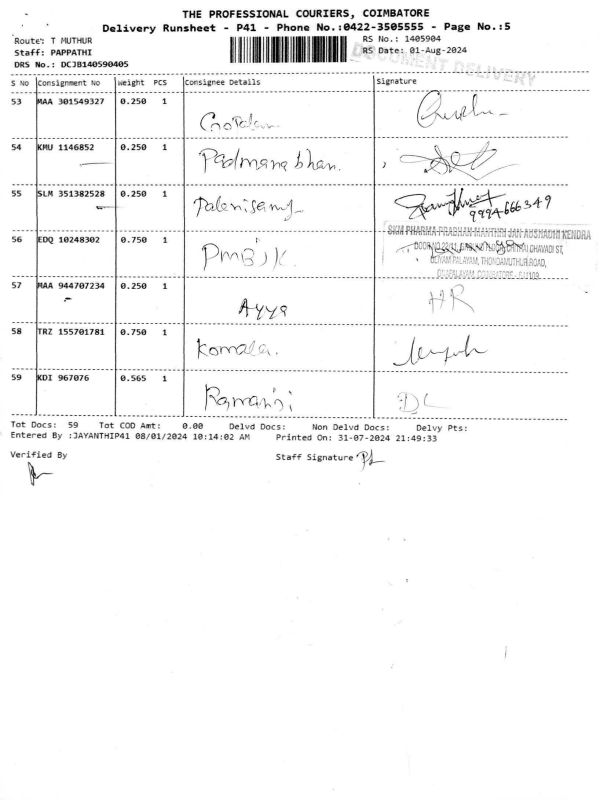 THE PROFESSIONAL COURIERS, COIMBATORE
Delivery Runsheet - P41 - Phone No.:0422-3505555 - Page No.:5
Route: T MUTHUR
RS No.: 1405904
Staff: PAPPATHI
RS Date: 01-Aug-2024
DRS No.: DCJB140590405
DOCUMENT DELIVERY
S No Consignment No Weight PCS Consignee Details Signature
53 MAA 301549327 0.250 1
54 KMU 1146852 0.250 1 Padmanabhan.
55 SLM 351382528 0.250 1 Palanisamy
9994666349
56 EDQ 10248302 0.750 1 PMBJK
SKM PHARMA PRADHAN MANTHRI JAN AUSHADHI KENDRA
57 MAA 944707234 0.250 1 Ayya HR
58 TRZ 155701781 0.750 1 Komala.
59 KDI 967076 0.565 1 Ramani
Tot Docs: 59 Tot COD Amt: 0.00 Delvd Docs: Non Delvd Docs: Delvy Pts:
Entered By :JAYANTHIP41 08/01/2024 10:14:02 AM Printed On: 31-07-2024 21:49:33
Verified By
Staff Signature